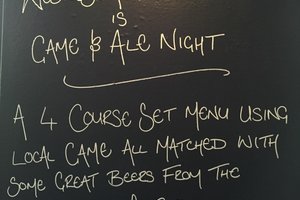 is
GAME & ALE NIGHT
A 4 COURSE SET MENU USING
LOCAL GAME ALL MATCHED WITH
SOME GREAT BEERS FROM THE